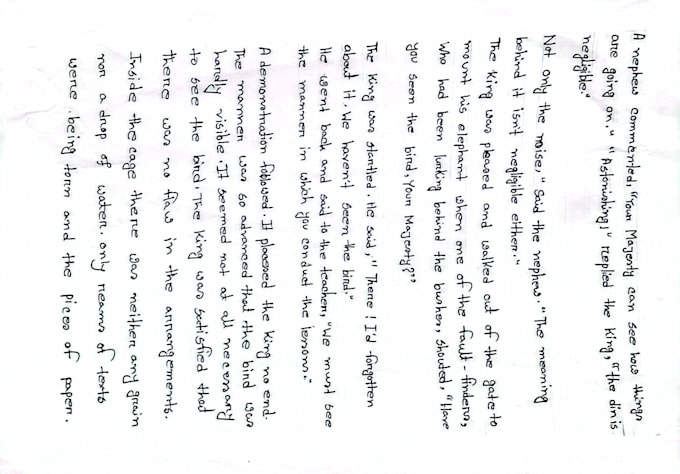 A nephew commented, "Your Majesty can see how things
are going on." "Astonishing," replied the King, "the din is
negligible."
Not only the noise," Said the nephew. "The meaning
behind it isn't negligible either."
The King was pleased and walked out of the gate to
mount his elephant when one of the fault-finders,
who had been lurking behind the bushes, shouted, "Have
you seen the bird, Your Majesty?"
The King was startled. He said, "There! I'd forgotten
about it. We haven't seen the bird."
He went back and said to the teacher, "We must see
the manner in which you conduct the lessons."
A demonstration followed. It pleased the King no end.
The manner was so advanced that the bird was
hardly visible. It seemed not at all necessary
to see the bird. The King was satisfied that
there was no flaw in the arrangements.
Inside the cage there was neither any grain
nor a drop of water. only reams of texts
were being torn and the pices of paper.